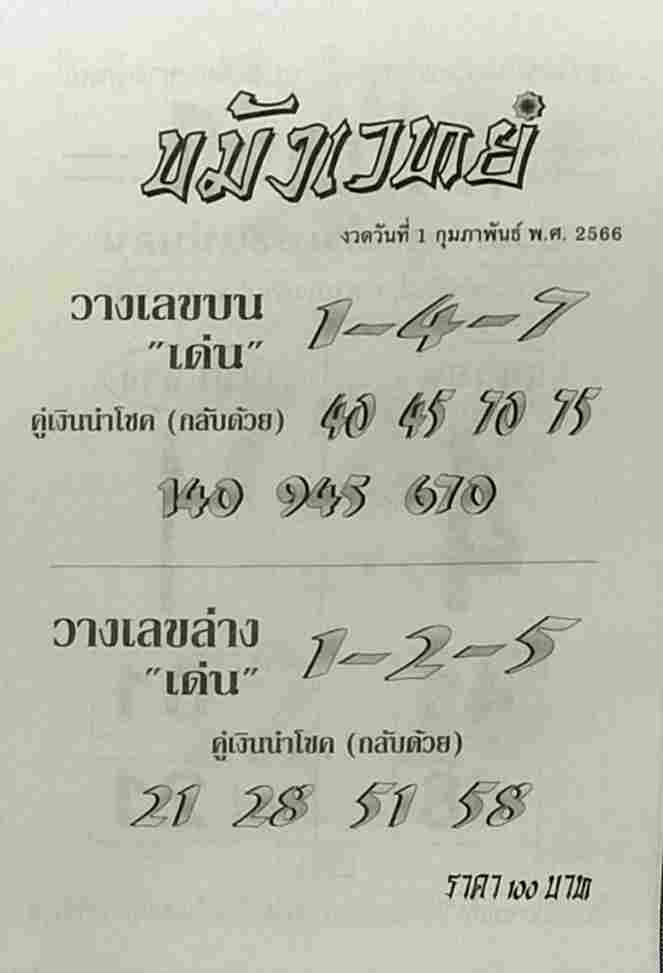 ขมังเวทย์
งวดวันที่ 1 กุมภาพันธ์ พ.ศ. 2566
วางเลขบน 1-4-7
"เด่น"
คู่เงินนำโชค (กลับด้วย) 40 45 70 75
140 945 670
วางเลขล่าง 1-2-5
"เด่น"
คู่เงินนำโชค (กลับด้วย)
21 28 51 58
ราคา 100 บาท